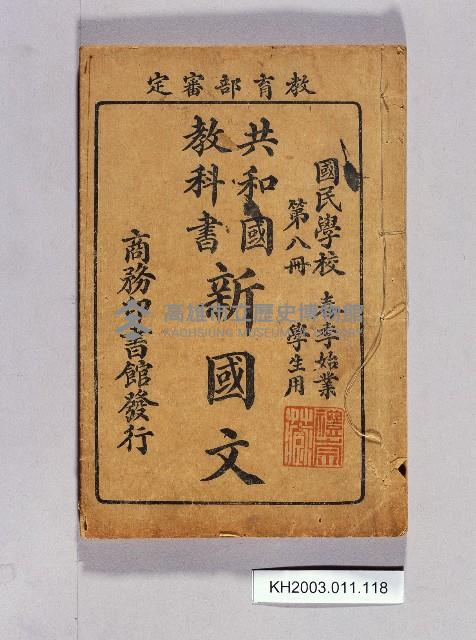 教育部審定
國民學校
第八冊
春季始業
學生用
共和國
教科書
新國文
商務印書館發行
高雄市立歷史博物館
KAOHSIUNG MUSEUM
KH2003.011.118